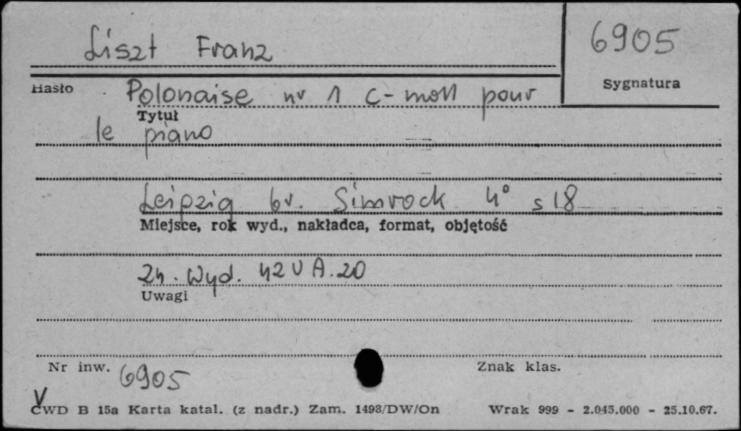 Liszt Franz
6905
Sygnatura
Hasło
Polonaise nr 1 c-moll pour
Tytuł
le piano
Leipzig br. Simrock 4° s 18
Miejsce, rok wyd., nakładca, format, objętość
Zn. Wyd. 42 V A. 20
Uwagi
Nr inw. 6905
Znak klas.
V
CWD B 15a Karta katal. (z nadr.) Zam. 1498/DW/On
Wrak 999 - 2.045.000 - 25.10.67.